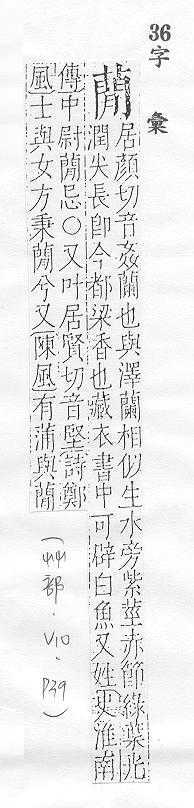 36
字彙
蕑
居顏切音姦蘭也與澤蘭相似生水旁紫莖赤節綠葉光
潤尖長卽今都梁香也藏衣書中可辟白魚又姓史淮南
傳中尉蕑忌○又叶居賢切音堅詩鄭
風士與女方秉蕑兮又陳風有蒲與蕑
(艸部．V10．P39)